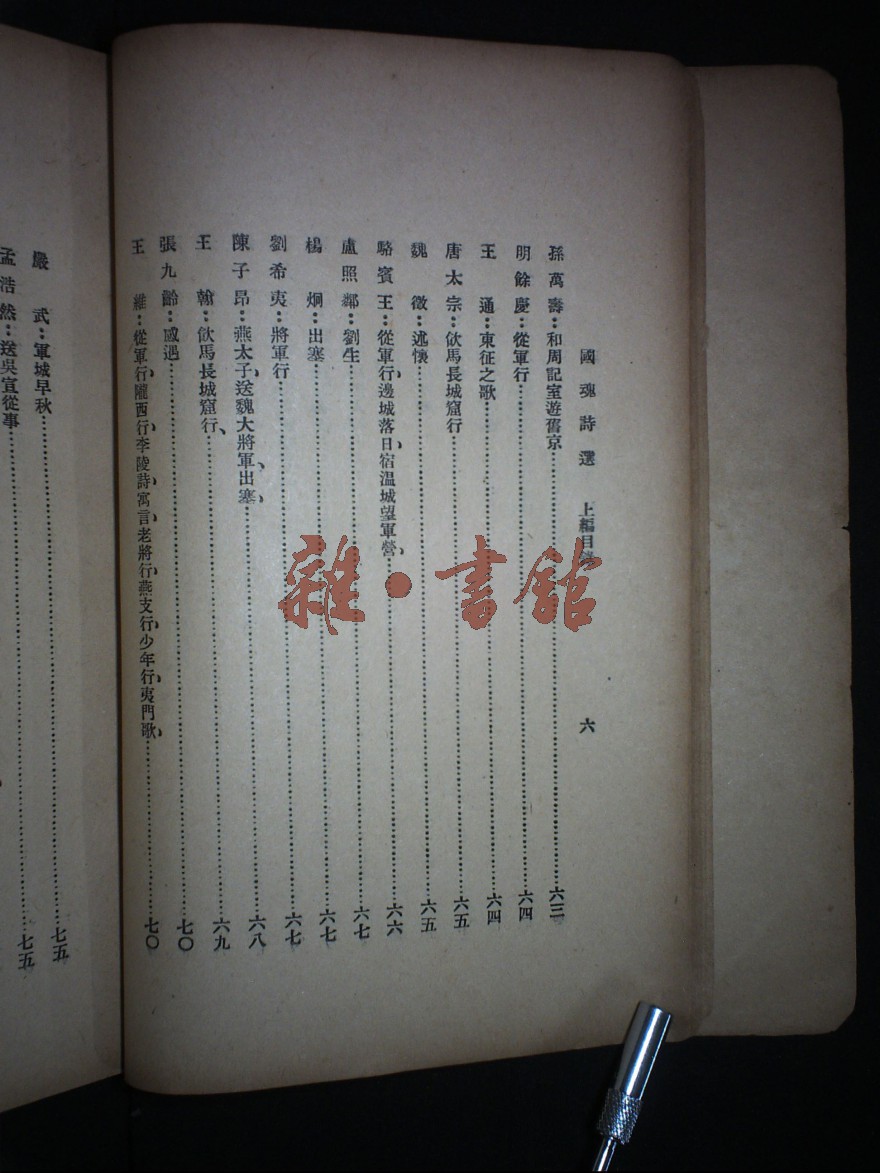 國魂詩選 上編目 六
孫萬壽：和周記室遊舊京……六三
明餘慶：從軍行……六四
王通：東征之歌……六四
唐太宗：飲馬長城窟行……六五
魏徵：述懷……六五
駱賓王：從軍行、邊城落日、宿温城望軍營、……六六
盧照鄰：劉生……六七
楊炯：出塞……六七
劉希夷：將軍行……六七
陳子昂：燕太子、送魏大將軍、出塞、……六八
王翰：飲馬長城窟行、……六九
張九齡：感遇……七〇
王維：從軍行、隴西行、李陵詩、寓言、老將行、燕支行、少年行、夷門歌、……七〇
嚴武：軍城早秋……七五
孟浩然：送吳宣從事……七五
雜·書館